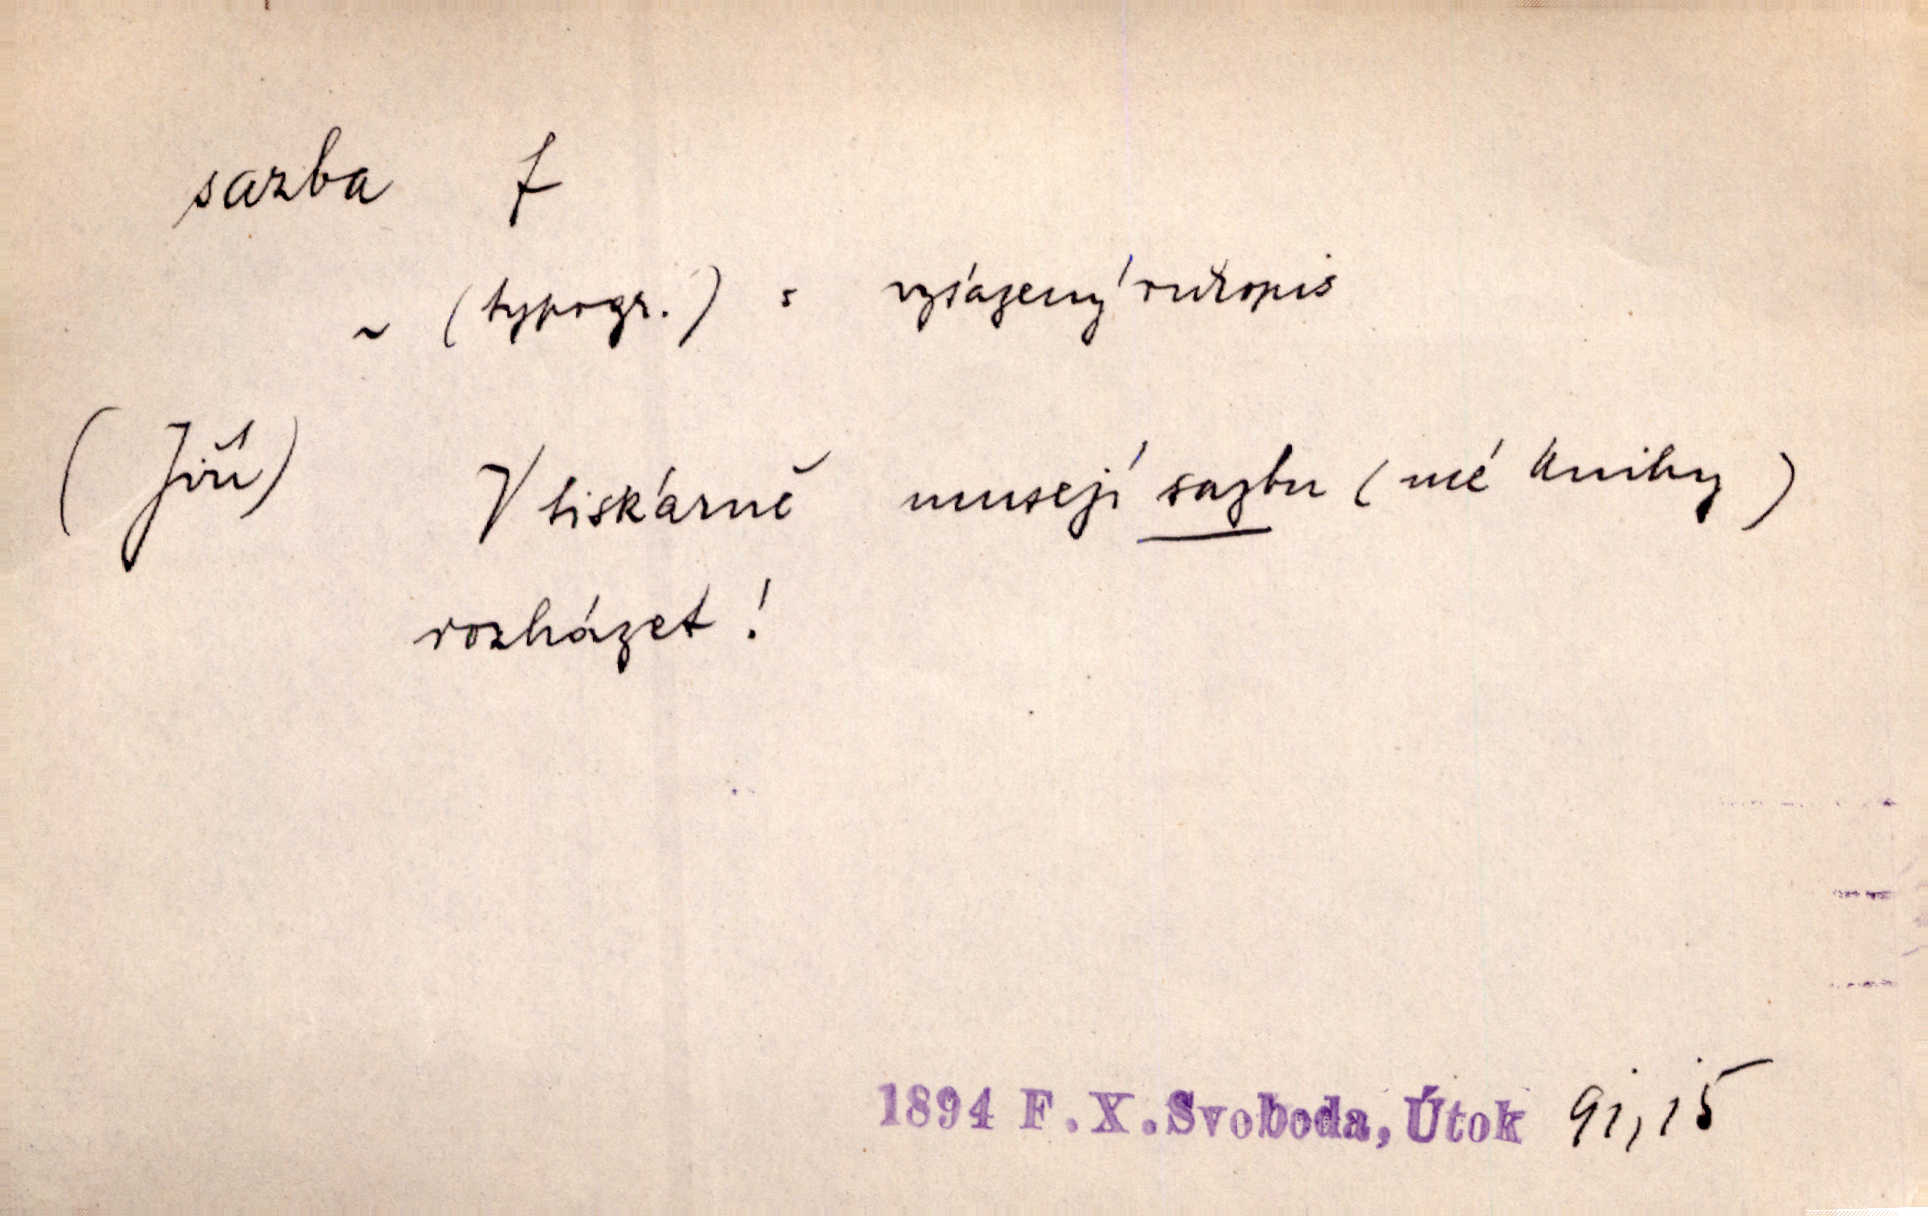 sazba f
~ (typogr.) : vysázený rukopis
(Jiří) V tiskárně musejí sazbu (mé knihy)
rozházet!
1894 F. X. Svoboda, Útok 91,15